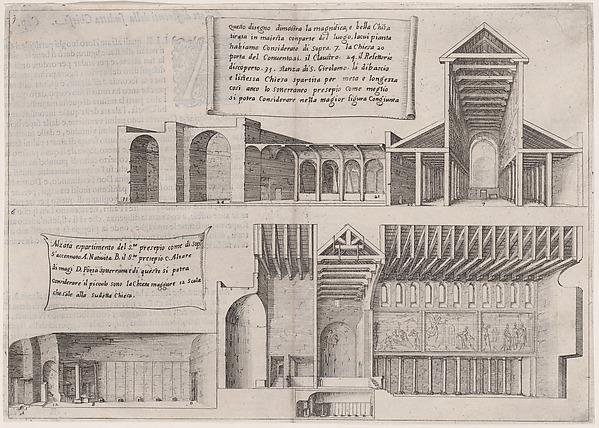 Questo disegno dimostra la magnifica, e bella Chiesa
tirata in maiesta conparte del luogo, lacui pianta
habiamo Considerato di Sopra. 7. la Chiesa 20
porta del Conuento. 21. il Claustro. 24. il Refettorio
discoperto. 33. stanza di S. Girolamo. li dibascio
e listessa Chiesa spartita per meta e longezza
cosi anco lo sonterraneo presepio come meglio
si potra Considerare nella magior figura Congiunta
6
Alzata espartimento del S.mo presepio come di Sop.
s'accennato A. Natiuita B. il S.mo presepio C. Altare
di magi D. Porta Sotterranea e di questo si potra
considerare il piccolo sono la Chiesa maggiore 12 Scala
che sale alla sudetta Chiesa.